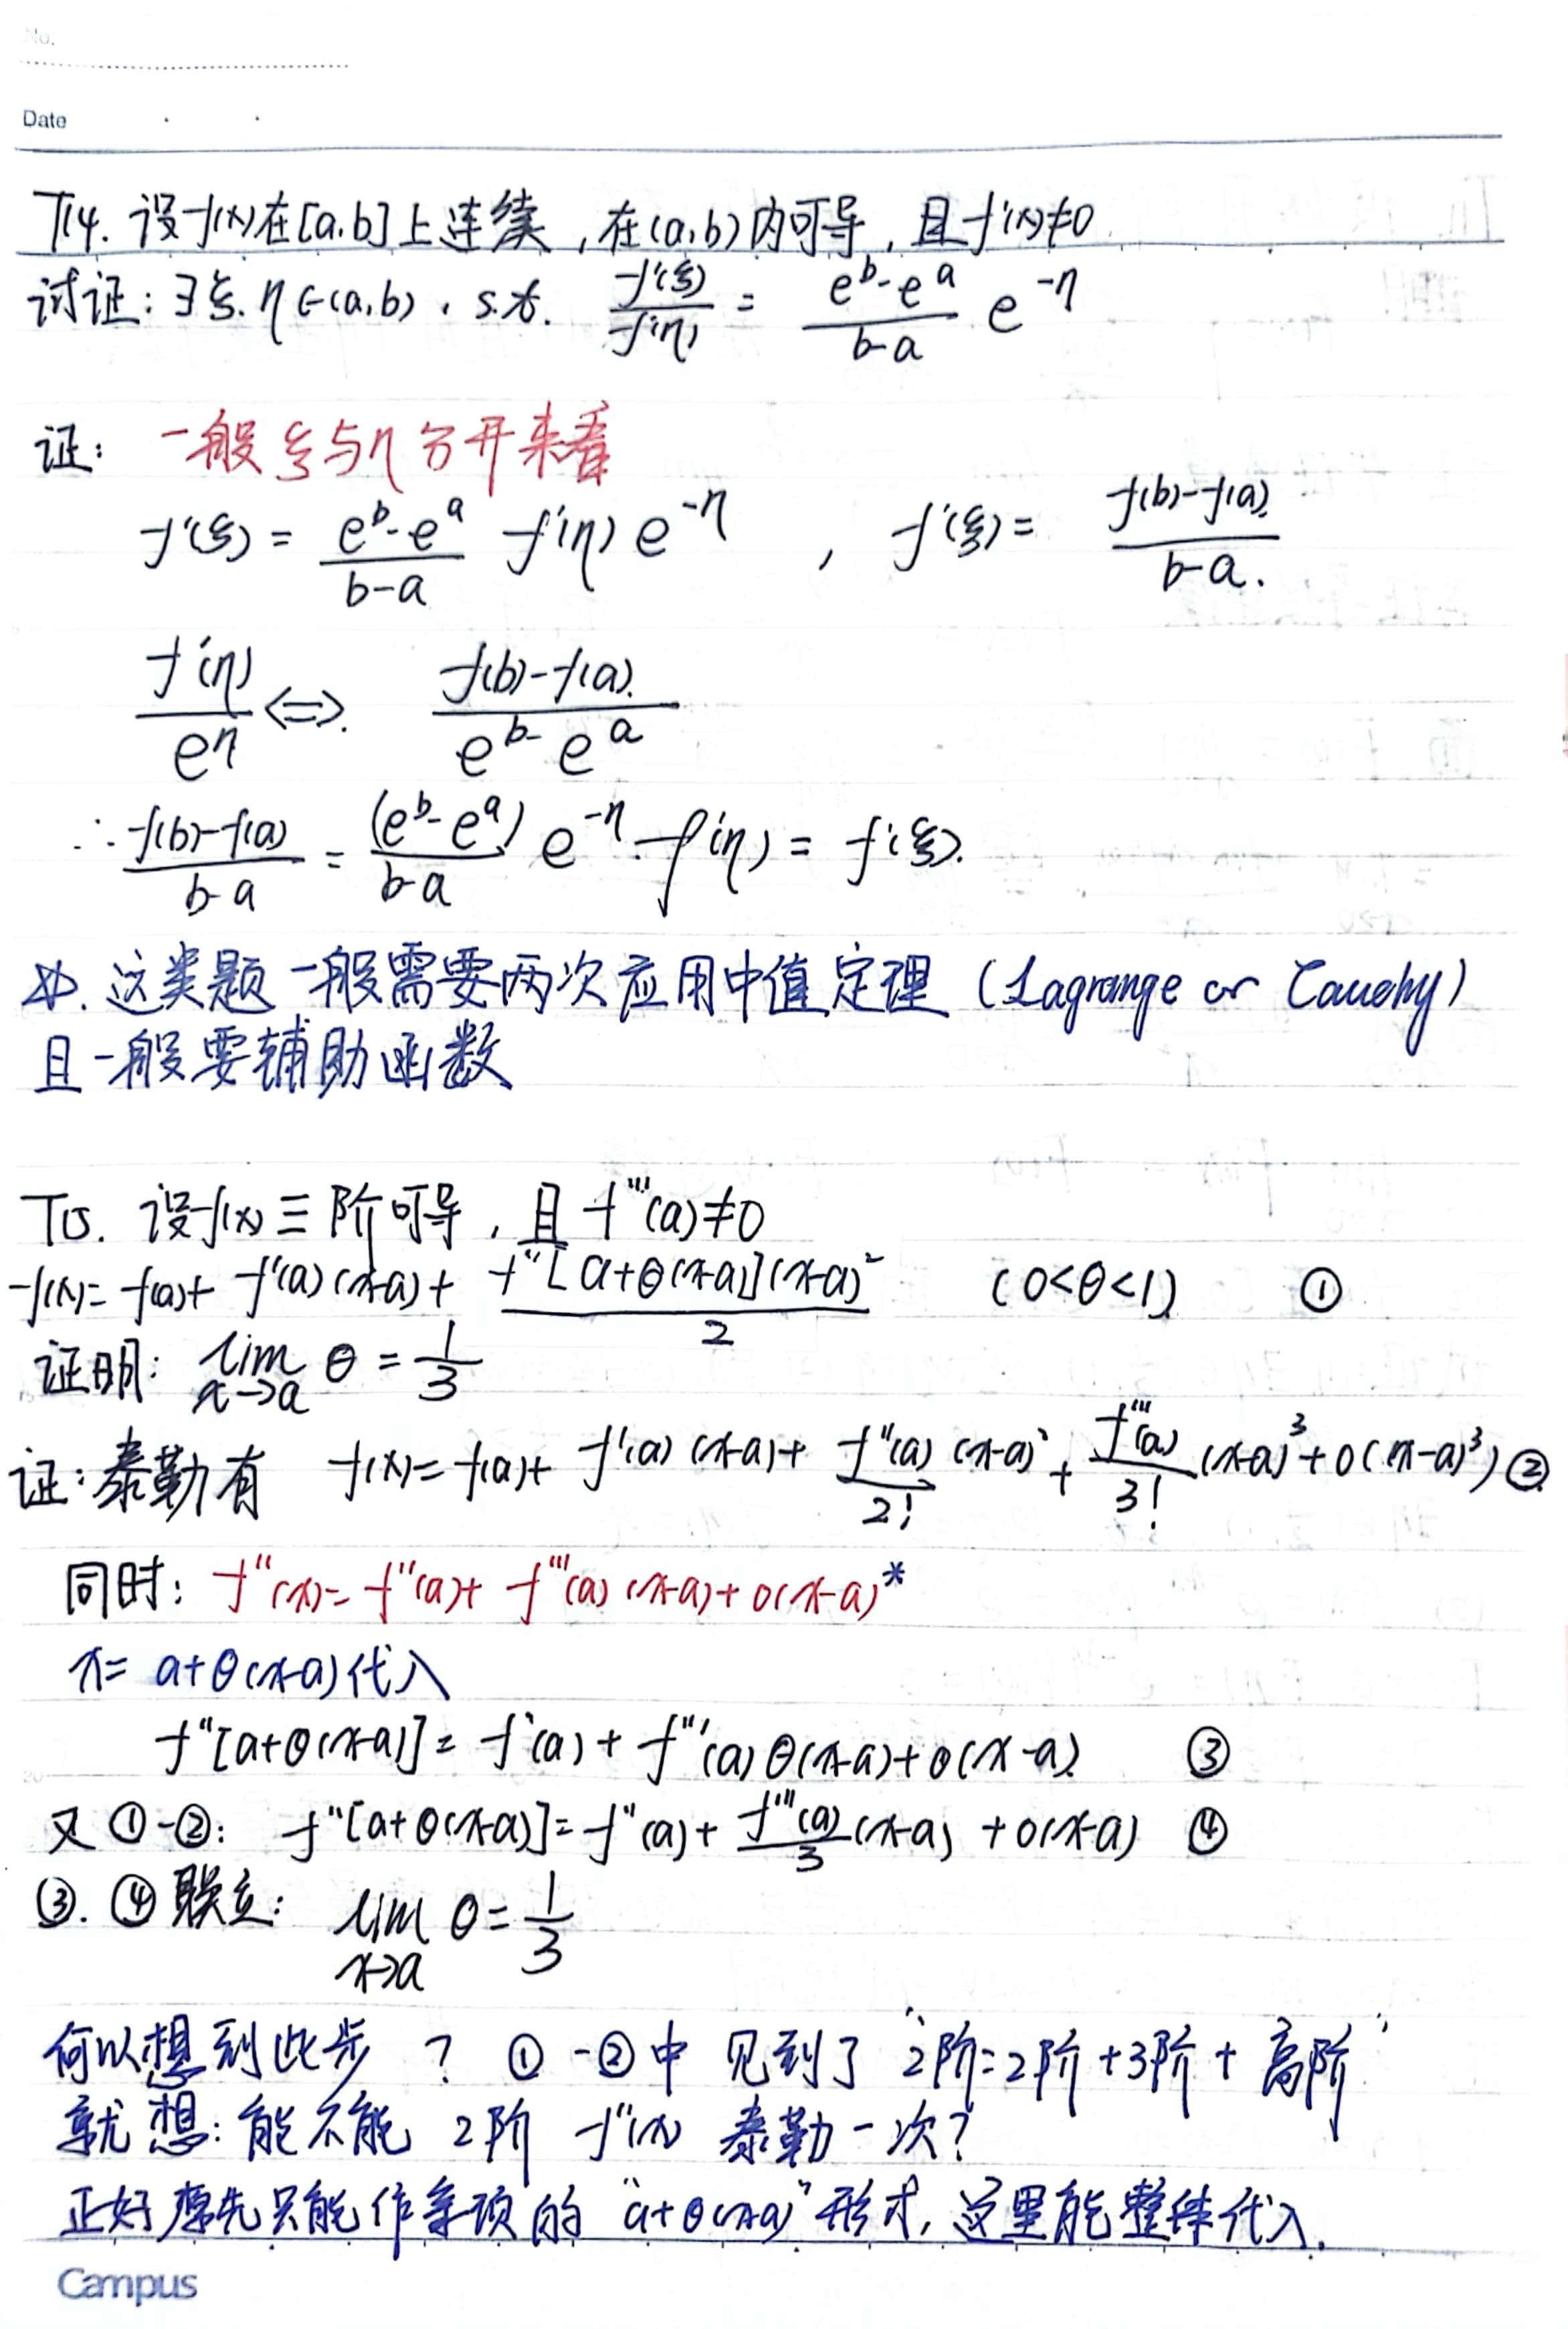 No.
Date
T14. 设f(x)在[a,b]上连续,在(a,b)内可导,且f'(x)≠0
试证:∃ξ.η∈(a,b), s.t. f'(ξ)/f'(η) = (e^b-e^a)/(b-a) e^{-η}
证: 一般ξ与η分开来看
f'(ξ) = (e^b-e^a)/(b-a) f'(η) e^{-η} , f'(ξ) = (f(b)-f(a))/(b-a).
f'(η)/e^η <=> (f(b)-f(a))/(e^b-e^a)
∴ (f(b)-f(a))/(b-a) = (e^b-e^a)/(b-a) e^{-η}·f'(η) = f'(ξ).
※. 这类题一般需要两次应用中值定理 (Lagrange or Cauchy)
且一般要辅助函数
T15. 设f(x)三阶可导,且f'''(a)≠0
f(x)= f(a)+ f'(a)(x-a)+ f''[a+θ(x-a)](x-a)²/2 (0<θ<1) ①
证明: lim_{x→a} θ = 1/3
证:泰勒有 f(x)= f(a)+ f'(a)(x-a)+ f''(a)/2! (x-a)² + f'''(a)/3! (x-a)³+o((x-a)³) ②
同时: f''(x)= f''(a)+ f'''(a)(x-a)+o(x-a) *
x= a+θ(x-a)代入
f''[a+θ(x-a)]= f''(a) + f'''(a)θ(x-a)+o(x-a) ③
又 ①-②: f''[a+θ(x-a)]= f''(a)+ f'''(a)/3 (x-a) +o(x-a) ④
③. ④ 联立: lim_{x→a} θ= 1/3
何以想到此步 ? ①-②中 见到了"2阶=2阶+3阶+高阶"
就想:能不能 2阶 f''(x) 泰勒一次?
正好原先只能作余项的"a+θ(x-a)"形式,这里能整体代入.
Campus